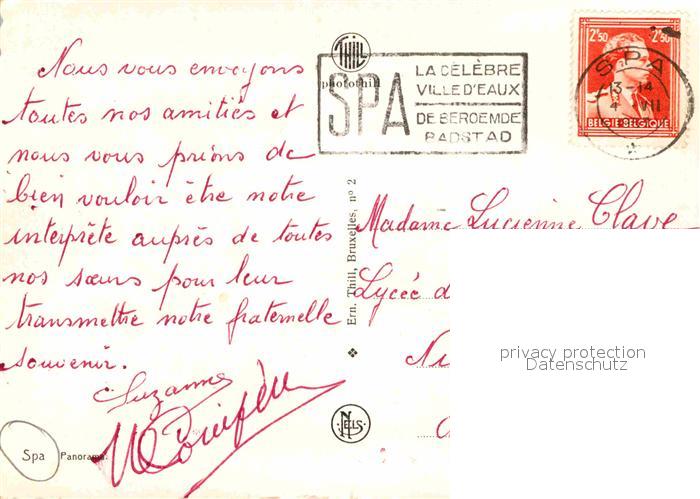 Nous vous envoyons
toutes nos amitiés et
nous vous prions de
bien vouloir être notre
interprète auprès de toutes
nos sœurs pour leur
transmettre notre fraternelle
souvenir.
Suzanne
Spa Panorama.
THILL
photothill
SPA
LA CÉLÈBRE
VILLE D'EAUX
DE BEROEMDE
BADSTAD
2F50 2F50
BELGIE-BELGIQUE
SPA
13-14
4 VII
Ern. Thill, Bruxelles, nº 2
NELS
Madame Lucienne Clave
Lycée d
Ni
privacy protection
Datenschutz